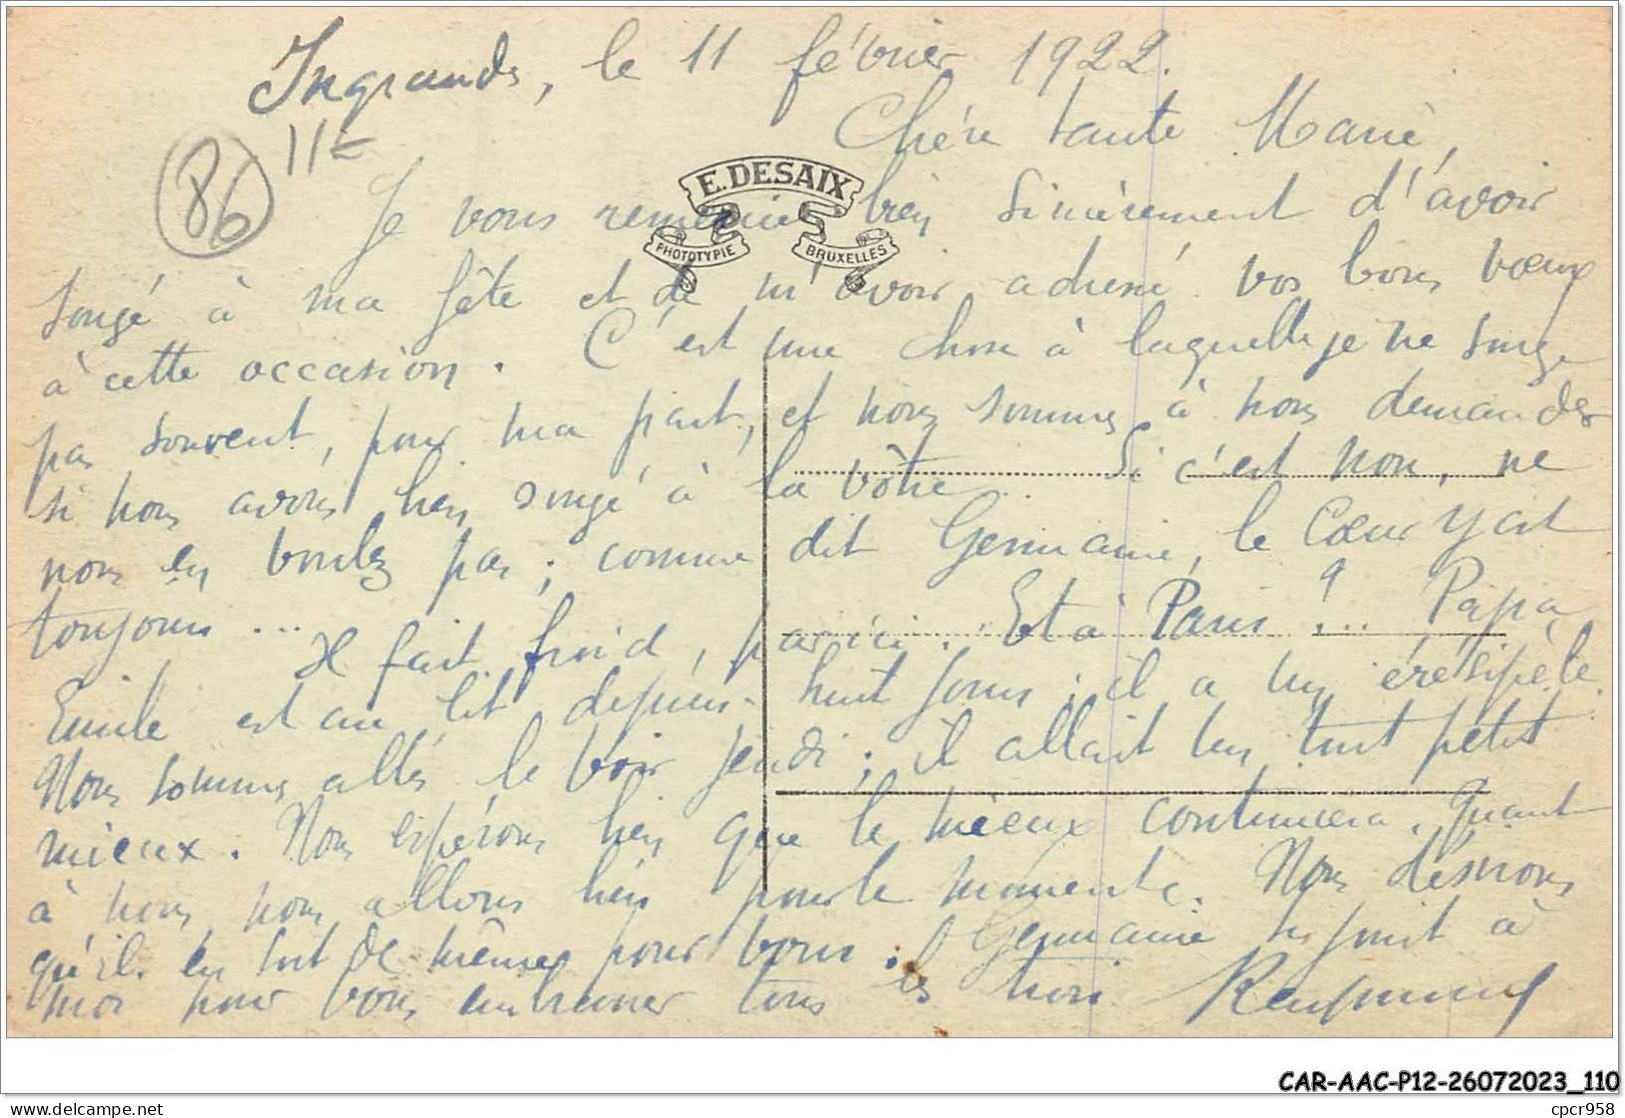 Ingrandes, le 11 février 1922.
86 11E
Chère tante Marie,
E. DESAIX
PHOTOTYPIE BRUXELLES
Je vous remercie bien sincèrement d'avoir
songé à ma fête et de m'avoir adressé vos bons vœux
à cette occasion. C'est une chose à laquelle je ne songe
pas souvent, pour ma part, et nous sommes à nous demander
si nous avons bien songé à la vôtre... Si c'est non, ne
nous en voulez pas ; comme dit Germaine, le Cœur y est
toujours ...
Il fait froid, par ici. Et à Paris ?... Papa
Emile est au lit depuis huit jours ; il a un érésipèle.
Nous sommes allés le voir jeudi ; il allait un tout petit
mieux. Nous espérons bien que le mieux continuera. Quant
à nous, nous allons bien pour le moment. Nous désirons
qu'il en soit de même pour vous. Germaine se joint à
moi pour vous embrasser tous les trois. Raymond
CAR-AAC-P12-26072023_110
delcampe.net
cpcr958